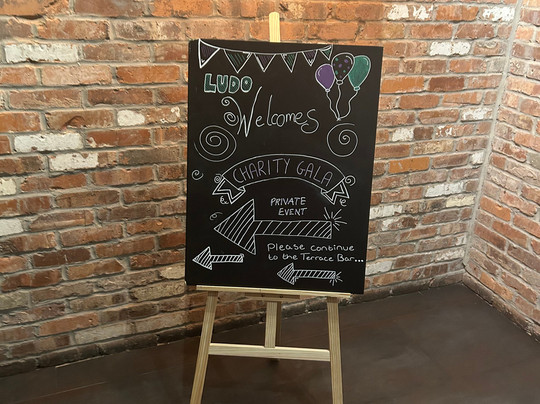 LUDO
Welcomes
CHARITY GALA
PRIVATE
EVENT
Please continue
to the Terrace Bar...